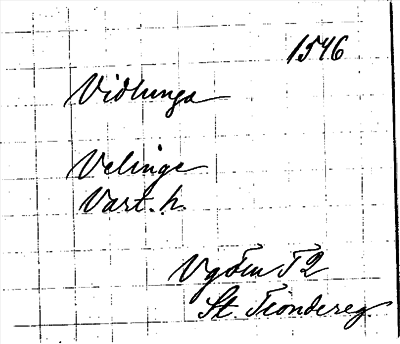 1546
Vidlunga
Velinge
Vart. h.
Vg Tem T 2
St. Tiondereg.